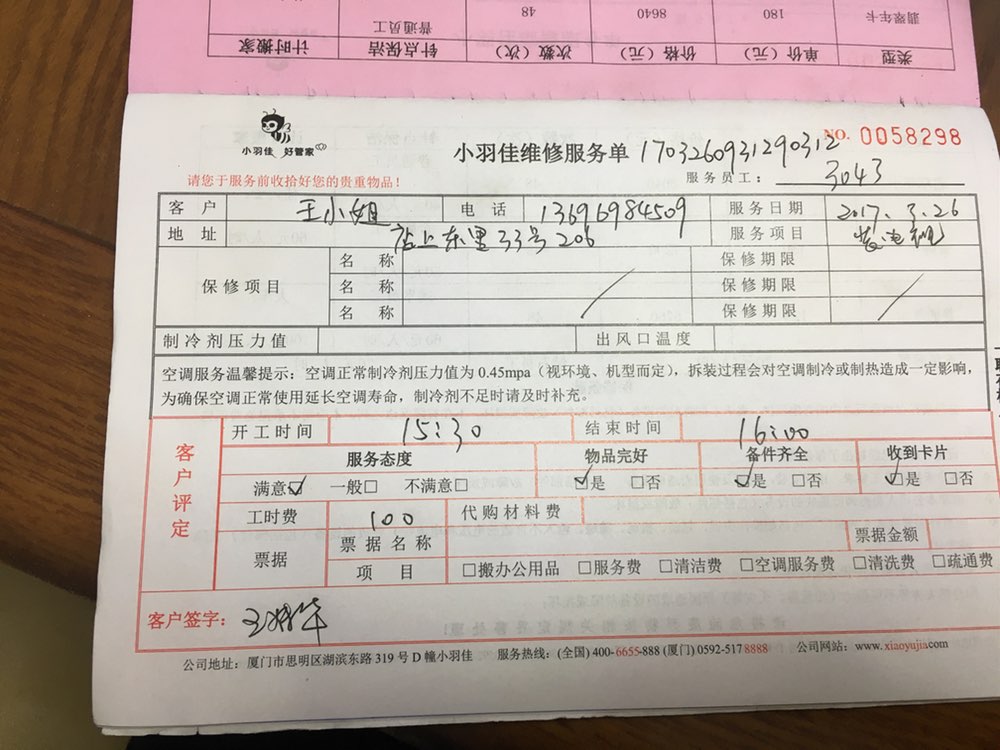 翡翠年卡 180 8640 48 普通员工
类型 单价（元） 价格（元） 次数（次） 针点保洁 计时搬家
小羽佳 好管家
小羽佳维修服务单 1703260931290312 NO. 0058298
请您于服务前收拾好您的贵重物品！ 服务员工： 3043
客户 王小姐 电话 13696984509 服务日期 2017.3.26
地址 站上东里33号206 服务项目 装电视
保修项目 名称 保修期限
名称 保修期限
名称 保修期限
制冷剂压力值 出风口温度
空调服务温馨提示：空调正常制冷剂压力值为 0.45mpa（视环境、机型而定），拆装过程会对空调制冷或制热造成一定影响，
为确保空调正常使用延长空调寿命，制冷剂不足时请及时补充。
客户评定
开工时间 15:30 结束时间 16:00
服务态度 物品完好 备件齐全 收到卡片
满意☑ 一般□ 不满意□ ☑是 □否 ☑是 □否 ☑是 □否
工时费 100 代购材料费
票据 票据名称 票据金额
项目 □搬办公用品 □服务费 □清洁费 □空调服务费 □清洗费 □疏通费
客户签字：
公司地址：厦门市思明区湖滨东路 319 号 D 幢小羽佳 服务热线：(全国) 400-6655-888 (厦门) 0592-517 8888 公司网站：www.xiaoyujia.com